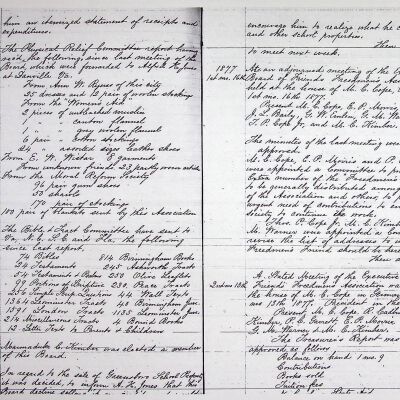 him an itemized statement of receipts and
expenditures.
The Physical Relief Committee report having
said, the following, since last meeting of the
Board which were forwarded to Alfred H. Jones
at Danville Va.
From Ann W. of this city
35 dresses and 12 pair of woolen stockings
From the "Women's Aid"
2 pieces of unbleached muslin
1 " " canton flannel
1 " " gray woolen flannel
6 pair Cotton stockings
24 " assorted sizes leather shoes
From E. W. Wistar 6 garments
From unknown friend 2.8
From the Moral Reform Society
96 pair gum shoes
50 shawls
170 pair of stockings
100 pair of Blankets sent by this Association
The Bible & Tract Committee have sent to
Va, N.C., T.C. and Fla., the following
since last report,
74 Bibles 314 Birmingham Books
24 Testaments 245 Ackworth Tracts
54 Testament & Psalms 258 Olive Leaflets
99 Portions of Scripture 230 Peace Tracts
245 Temple Temp. Lectures 44 Wall Texts
1364 Leominster Tracts 48 Birmingham June.
1391 London Tracts 1135 Leominster June.
214 Miscellaneous Tracts 4 Bound Books
12 Letts Texts to Parents & Children
Marmaduke C. Kimber was elected a member
of this Board.
In regard to the sale of Greensboro School Property
it was decided, to inform A. H. Jones that this
Board decline
encourage him to realize what he c
and other school properties.
Then
to meet next week.
1877 At an adjourned meeting of the
1st mo. 16th Board of Friends Freedmen's As
held at the house of M. C. Cope,
1st mo. 16th 1877.
Present M. C. Cope, E. P. Morris
J. L. Baily, G. W.
T. P. Cope Jr, and M. C. Kimber.
The minutes of the last meeting were
approved.
M. C. Cope, E. P. Morris and P. C.
were appointed a Committee to
Extra number of the Freedman's
to be generally distributed among
of the Association and others; to
urgent need of contributions to
society to continue the work.
Thos. P. Cope Jr. M. C. Kim
M. Warner were appointed a Comm
revise the list of addresses to
Freedman's Friend should be
Then
2nd mo 13th A Stated Meeting of the Executive
Friends Freedmen's Association was
the house of M. C. Cope in Germ
mo. 13th 1877. President in the
Present, M. C. Cope, R. Cadbu
Kimber, P. C. Garrett, E. P. Morris
G. M. Warner & M. C. Kimber.
The Treasurer's Report was
approved as follows
Balance on hand 1 mo. 9
Contributions
Books sold
Tuition fees